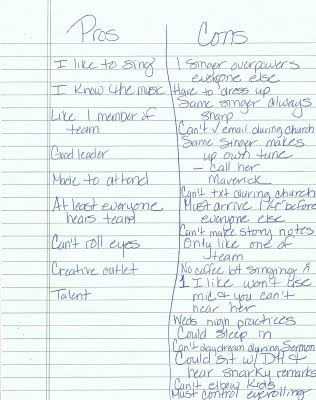 Pros
I like to sing
I know the music
Like 1 member of
team
Good leader
Made to attend
At least everyone
hears team
Can't roll eyes
Creative outlet
Talent
Cons
1 singer overpowers
everyone else
Have to dress up
Same singer always
sharp
Can't √ email during church
Same singer makes
up own tune
- call her
Maverick
Can't txt during church
Must arrive 1¼° before
everyone else
Can't make story notes
Only like one of
team
No coffee b4 singing &
1 I like won't use
mic & you can't
hear her
Weds nigh practices
Could sleep in
Can't daydream during Sermon
Could sit w/ DH &
hear snarky remarks
Can't elbow kids
Must control eyerolling